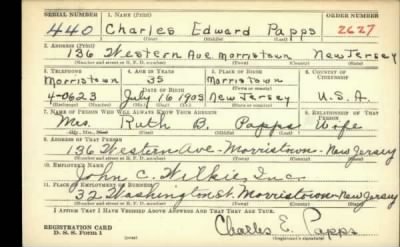 SERIAL NUMBER 1. NAME (Print) ORDER NUMBER
440 Charles Edward Papps 2627
2. ADDRESS (Print)
136 Western Ave. Morristown New Jersey
(Number and street or R. F. D. number) (Town) (County) (State)
3. TELEPHONE 4. AGE IN YEARS 5. PLACE OF BIRTH 6. COUNTRY OF CITIZENSHIP
Morristown 35 Morristown
DATE OF BIRTH (Town or county)
4-0623 July 16 1905 New Jersey U.S.A.
(Exchange) (Number) (Mo.) (Day) (Yr.) (State or country)
7. NAME OF PERSON WHO WILL ALWAYS KNOW YOUR ADDRESS 8. RELATIONSHIP OF THAT PERSON
Mrs. Ruth B. Papps Wife
(Mr., Mrs., Miss) (First) (Middle) (Last)
9. ADDRESS OF THAT PERSON
136 Western Ave- Morristown- New Jersey
(Number and street or R. F. D. number) (Town) (County) (State)
10. EMPLOYER'S NAME
John C. Wilkie, Inc.
11. PLACE OF EMPLOYMENT OR BUSINESS
32 Washington St. Morristown- New Jersey
(Number and street or R. F. D. number) (Town) (County) (State)
I AFFIRM THAT I HAVE VERIFIED ABOVE ANSWERS AND THAT THEY ARE TRUE.
REGISTRATION CARD
D. S. S. Form 1
Charles E. Papps
(Registrant's signature)